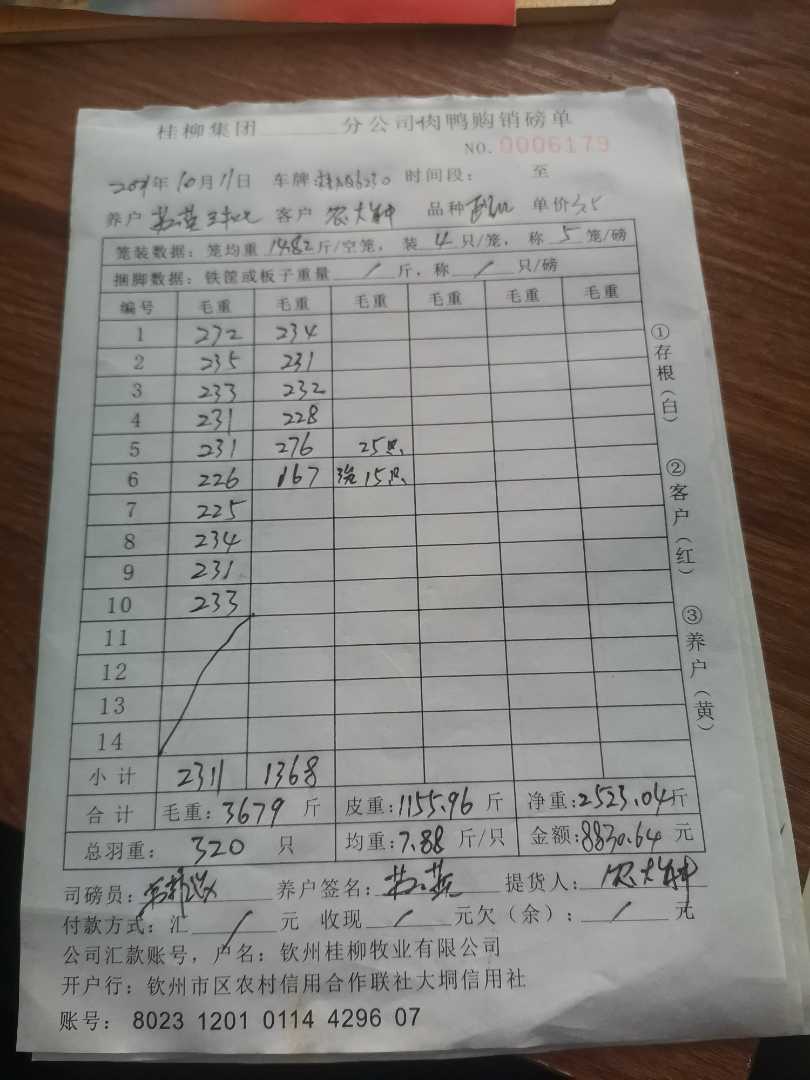 桂柳集团 分公司肉鸭购销磅单
NO. 0006179
年10月11日 车牌 时间段： 至
养户 客户 农大钟 品种 单价3.5
笼装数据：笼均重 14.82斤/空笼，装 4 只/笼，称 5 笼/磅
捆脚数据：铁筐或板子重量 / 斤，称 / 只/磅
编号 毛重 毛重 毛重 毛重 毛重 毛重
1 232 234
2 235 231
3 233 232
4 231 228
5 231 276 25只
6 226 167 15只
7 225
8 234
9 231
10 233
11
12
13
14
小计 2311 1368
合计 毛重：3679 斤 皮重：1155.96 斤 净重：2523.04斤
总羽重： 320 只 均重：7.88 斤/只 金额：8830.64 元
司磅员： 养户签名： 提货人：农大钟
付款方式：汇 / 元 收现 / 元欠（余）： / 元
公司汇款账号，户名：钦州桂柳牧业有限公司
开户行：钦州市区农村信用合作联社大垌信用社
账号： 8023 1201 0114 4296 07
①存根（白）
②客户（红）
③养户（黄）